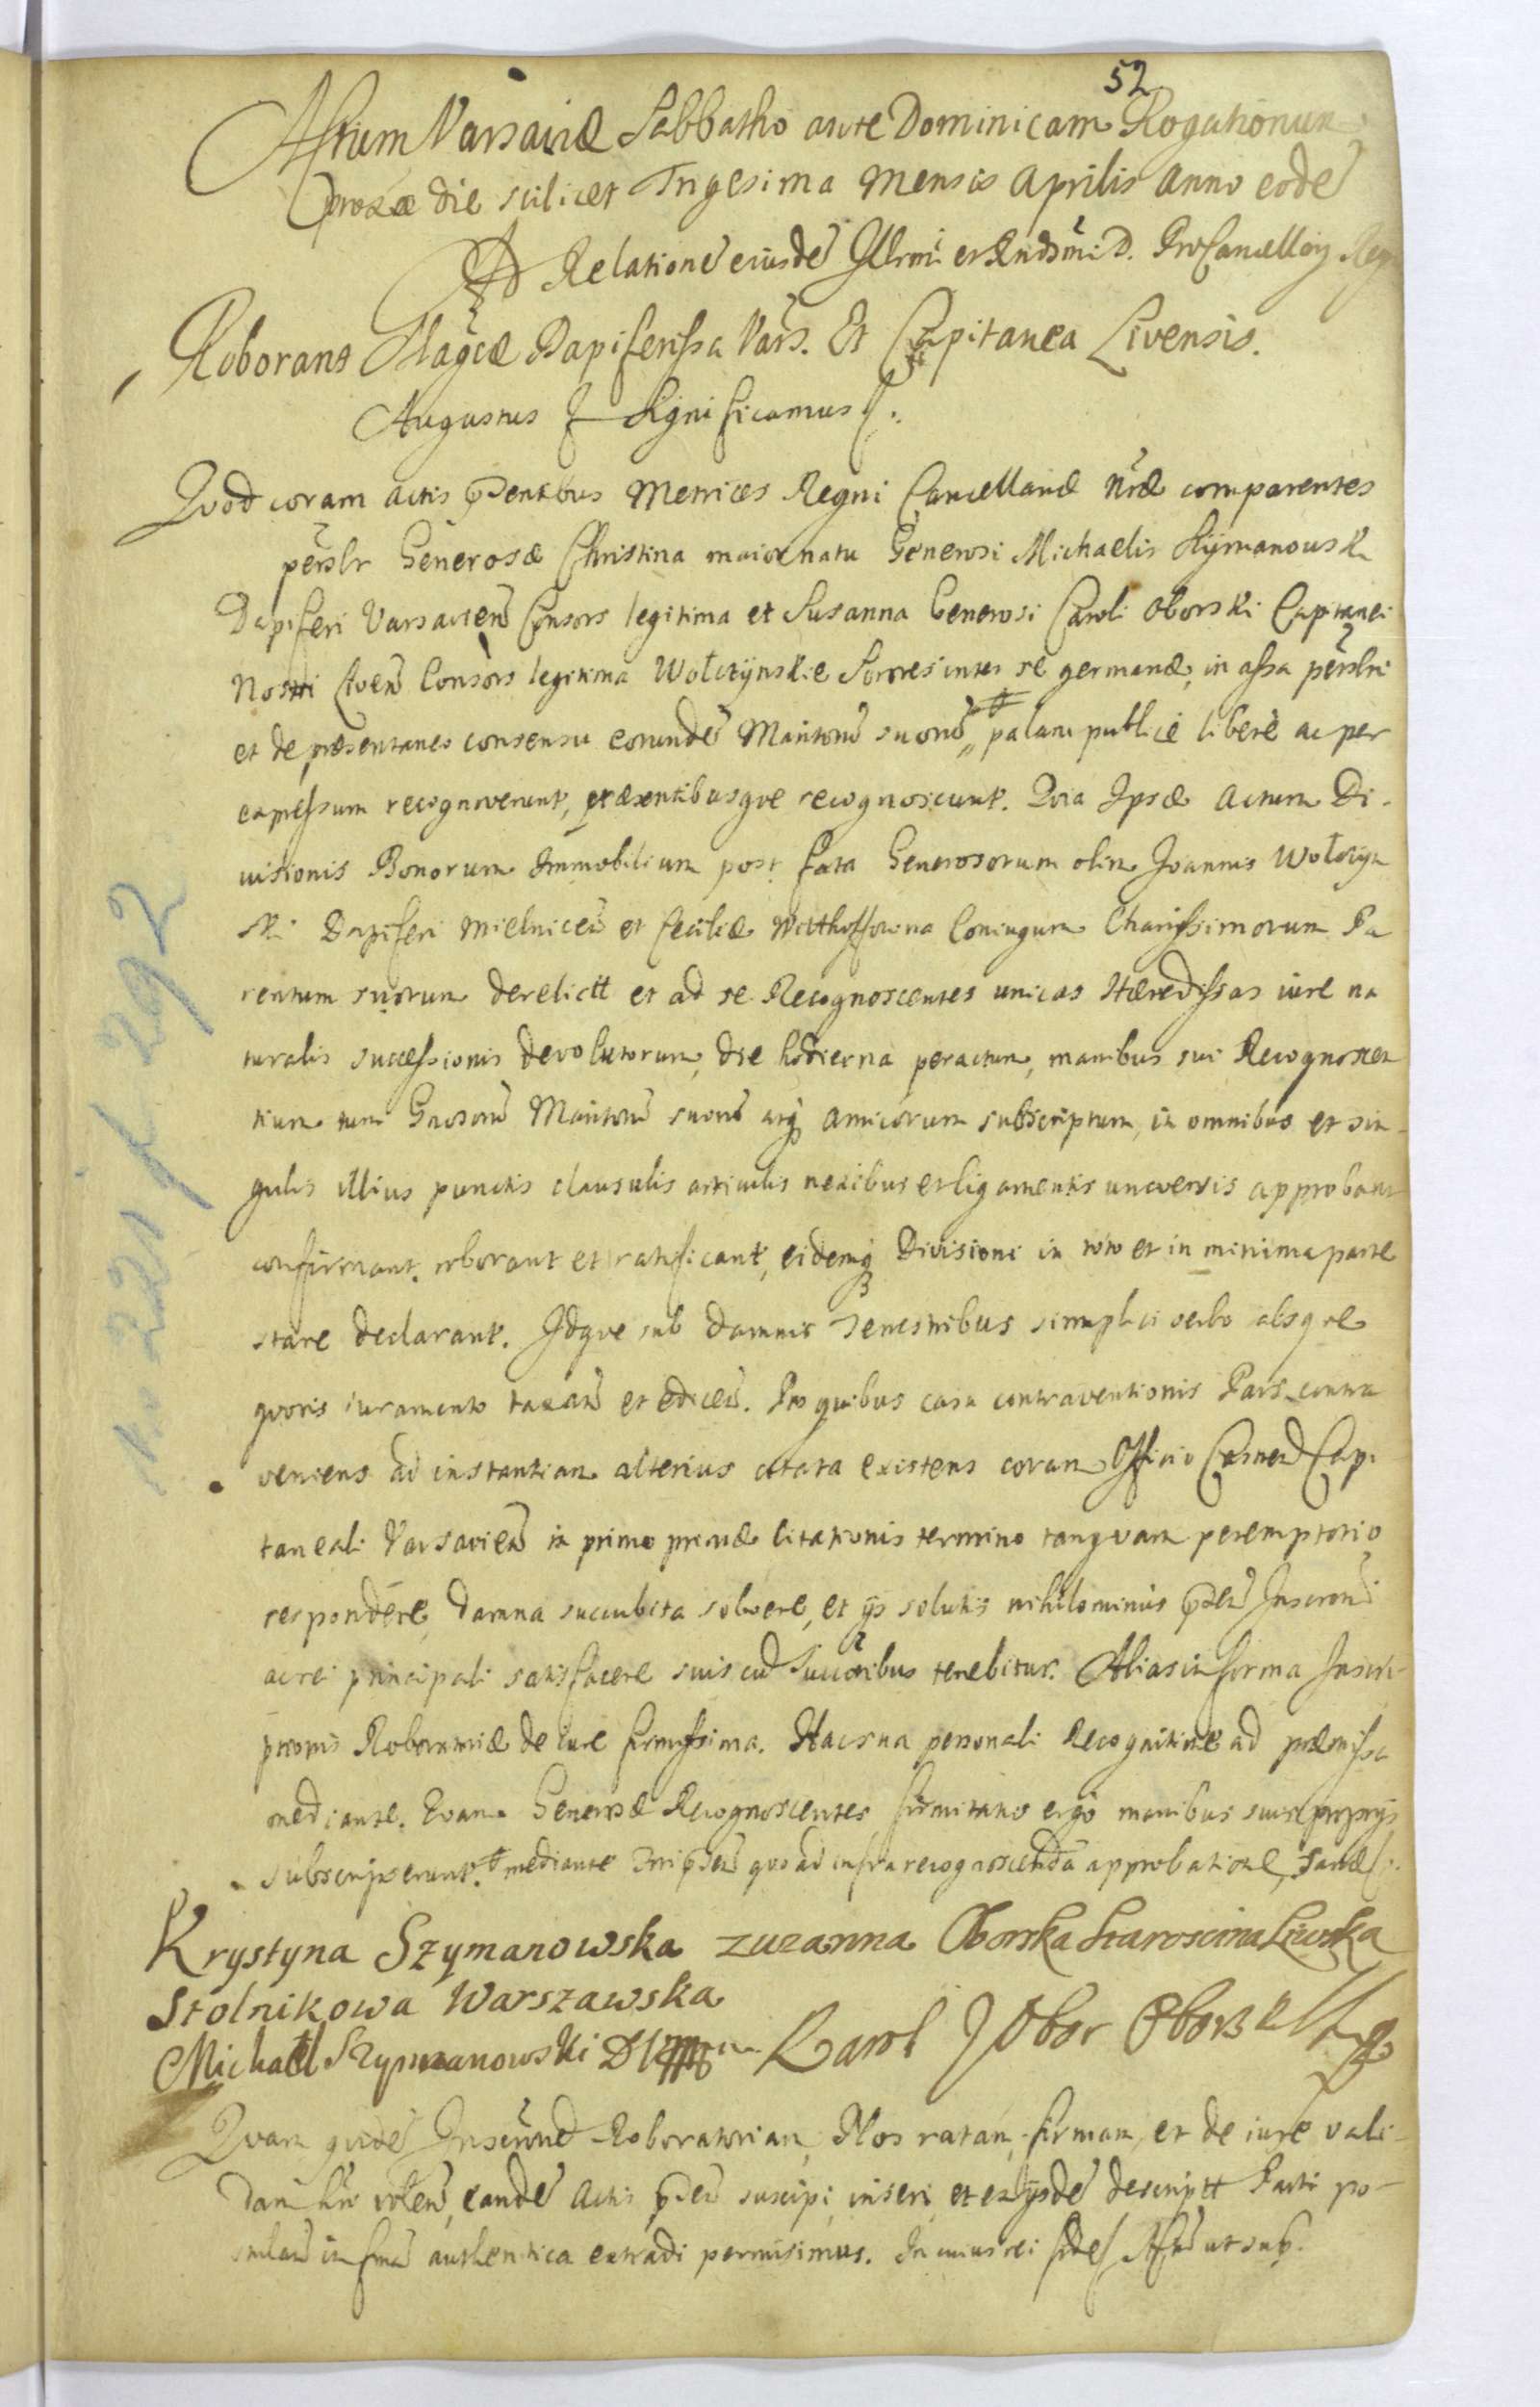 52
Actum Varsaviæ Sabbatho ante Dominicam Rogationum
proxæ die scilicet Trigesima Mensis Aprilis Anno eode
Ad Relatione eiusde Illrmi et Rndsmi D. ProCancellary Reg
Roborant Magcæ Dapiferissa Vars. Et Capitanea Livensis.
Augustus & Significamus &.
Quod coram actis pntibus Metrices Regni Cancellariæ nræ comparentes
personlr Generosæ Christina maior natu Generosi Michaelis Szÿmanouski
Dapiferi Varsavien Consors legitima et Susanna Generosi Caroli Oborski Capitanei
Nostri Liven Consors legitima Wołczÿnskie Sorores inter se germanæ, in assa personlri
et de præsentaneo consensu eorunde Maritoru suoru # palam publice libere ac per
expressum recognoverunt, præsentibusque recognoscunt. Quia Ipsæ actum Di-
uisionis Bonorum Immobilium post fata Generosorum olim Joannis Wołczÿn
ski Dapiferi Mielnicen et Ceciliæ Witthoffowna Coniugum Charissimorum Pa
rentum suorum derelictt et ad se Recognoscentes unicas Hæredissas iure na
turalis successionis devolutorum, die hodierna peractum, manibus sui Recognoscen
tium tum Gnosoru Maritoru suoru atq amicorum subscriptum, in omnibus et sin-
gulis illius punctis clausulis articulis nexibus et ligamentis universis approbant
confirmant, roborant et ratificant, eidemq Divisioni in toto et in minima parte
stare declarant. Idque sub damnis terrestribus simplici verbo absq re
quoris iuramento taxan et edicen. Pro quibus casu contraventionis Pars contra
veniens ad instantiam alterius citata existens coram Officio Castren Capi
taneali Varsavien in primo præviæ citationis termino tanquam peremptorio
respondere, damna succubita solvere, et ÿs solutis nihilominus pnti Inscroni
ac rei principali satisfacere suis cu Succoribus tenebitur. Alias in forma Inscri-
ptionis Roboratoriæ de iure firmissima. Hac sua personali Recognitione ad præmissa
mediante. Quam Generosæ Recognoscentes firmitatis ergo manibus suis proprÿs
subscripserunt. # mediante quo ad infra recognoscenda approbatione, stand &.
Krystyna Szymanowska zuzanna Oborska Staroscina Liwska
Stolnikowa Warszawska
Michael Szymanowski Karol z Obor Oborski
Quam quide Inscrone Roboratoriam, Nos ratam, firmam, et de iure vali-
dam hre volen, eande Actis pnti suscipi, inseri, et ex ÿsde descriptt Parti po-
stulan in fma authentica extradi permisimus. In cuius rei fide Actu ut sup.